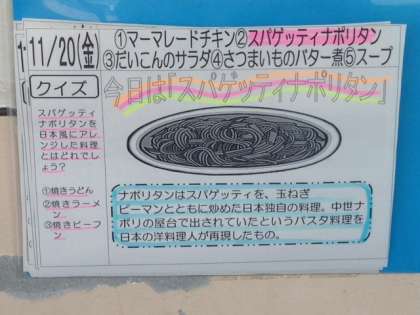 11/20(金)
①マーマレードチキン②スパゲッティナポリタン
③だいこんのサラダ④さつまいものバター煮⑤スープ
クイズ
今日は「スパゲッティナポリタン」
スパゲッティ
ナポリタンを
日本風にアレ
ンジした料理
とはどれでし
ょう？
①焼きうどん
②焼きラーメ
ン
③焼きビーフ
ン
ナポリタンはスパゲッティを、玉ねぎ
ピーマンとともに炒めた日本独自の料理。中世ナ
ポリの屋台で出されていたというパスタ料理を
日本の洋料理人が再現したもの。